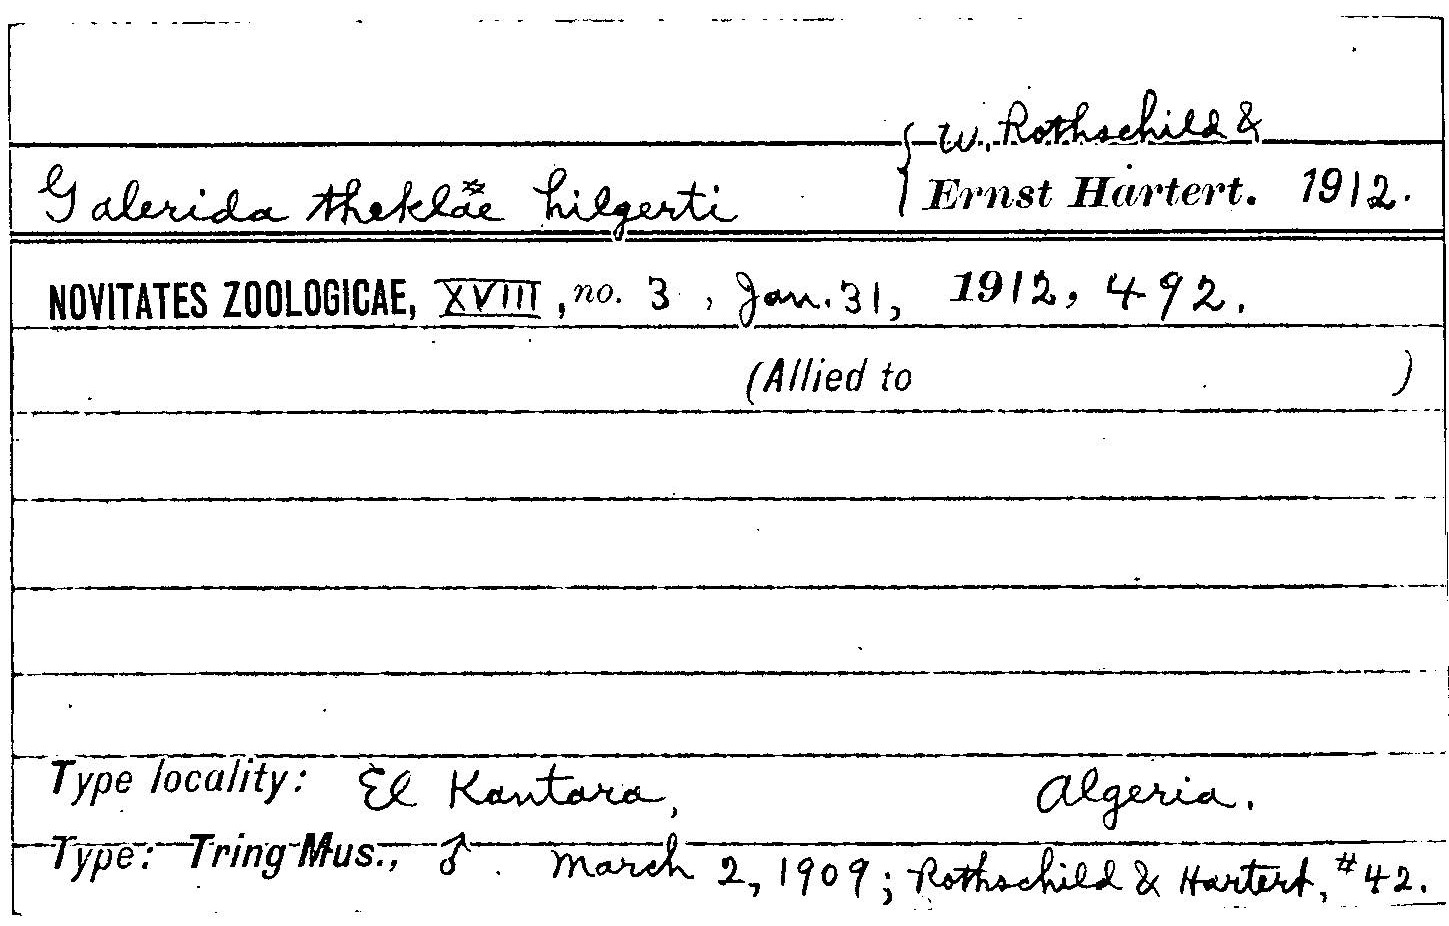 W. Rothschild &
Galerida theklæ hilgerti { Ernst Hartert. 1912.
NOVITATES ZOOLOGICAE, XVIII, no. 3, Jan. 31, 1912, 492.
(Allied to )
Type locality: El Kantara, Algeria.
Type: Tring Mus., ♂. March 2, 1909; Rothschild & Hartert, #42.